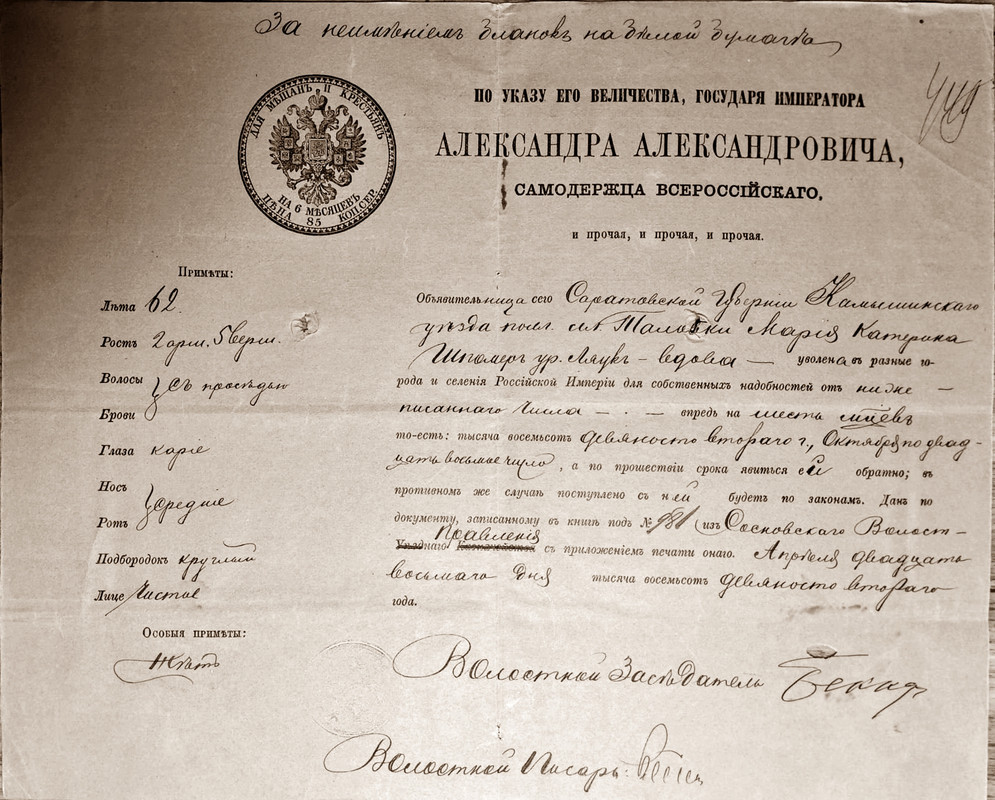 За неимѣніемъ бланковъ на бѣлой бумагѣ
449
ДЛЯ МѢЩАНЪ И КРЕСТЬЯНЪ
НА 6 МѢСЯЦЕВЪ
ЦѢНА 85 КОП. СЕР.
ПО УКАЗУ ЕГО ВЕЛИЧЕСТВА, ГОСУДАРЯ ИМПЕРАТОРА
АЛЕКСАНДРА АЛЕКСАНДРОВИЧА,
САМОДЕРЖЦА ВСЕРОССІЙСКАГО,
и прочая, и прочая, и прочая.
Примѣты:
Лѣта 62.
Ростъ 2 арш. 5 верш.
Волосы
Брови съ просѣдью
Глаза каріе
Носъ
Ротъ средніе
Подбородокъ круглый
Лице Чистое
Особыя примѣты:
Нѣтъ
Объявительница сего Саратовской Губерніи Камышинскаго
уѣзда пос. Таловки Марія Катерина
ур. Ляукъ – вдова — уволена въ разные го-
рода и селенія Россійской Имперіи для собственныхъ надобностей отъ ниже –
писаннаго числа — · — впредь на шесть м-цевъ
то-есть: тысяча восемьсотъ девяносто втораго г., Октября по двад-
цать восьмое число, а по прошествіи срока явиться ей обратно; въ
противномъ же случаѣ поступлено съ ней будетъ по законамъ. Данъ по
документу, записанному въ книгѣ подъ № 981 (изъ Сосновскаго Волост-
Уѣзднаго Правленія Казначейства съ приложеніемъ печати онаго. Апрѣля двадцать
восьмаго дня тысяча восемьсотъ девяносто втораго
года.
Волостной Засѣдатель
Волостной Писарь: